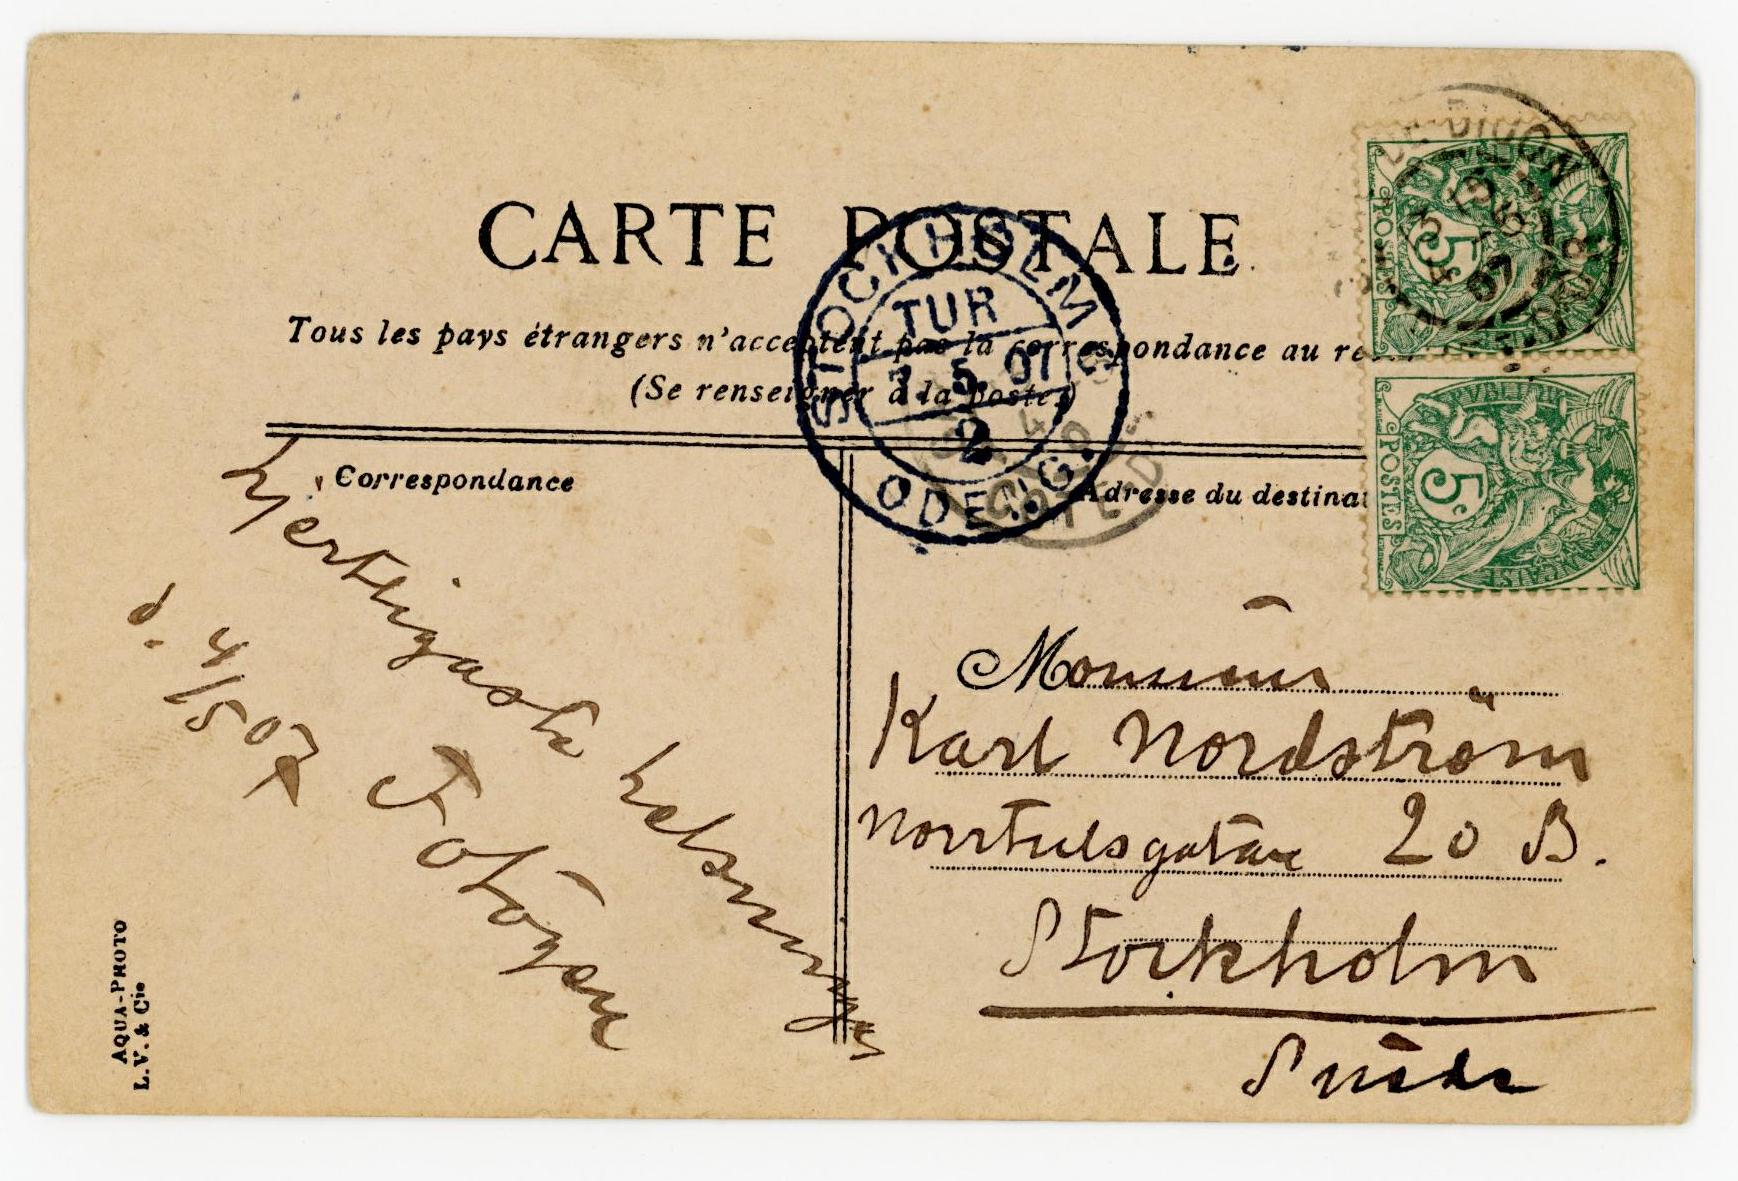 CARTE POSTALE
Tous les pays étrangers n'acceptent pas la correspondance au
(Se renseigner à la poste)
Correspondance
Adresse du destinat
STOCKHOLM
TUR
7. 5. 07
2
ODENG.
DIJON
07
POSTES
5c
POSTES
5c
Hjertligaste helsningar
d. 4/5 07
Monsieur
Karl Nordström
Norrtulsgatan 20 B.
Stockholm
Suède
AQUA-PHOTO
L. V. & Cie